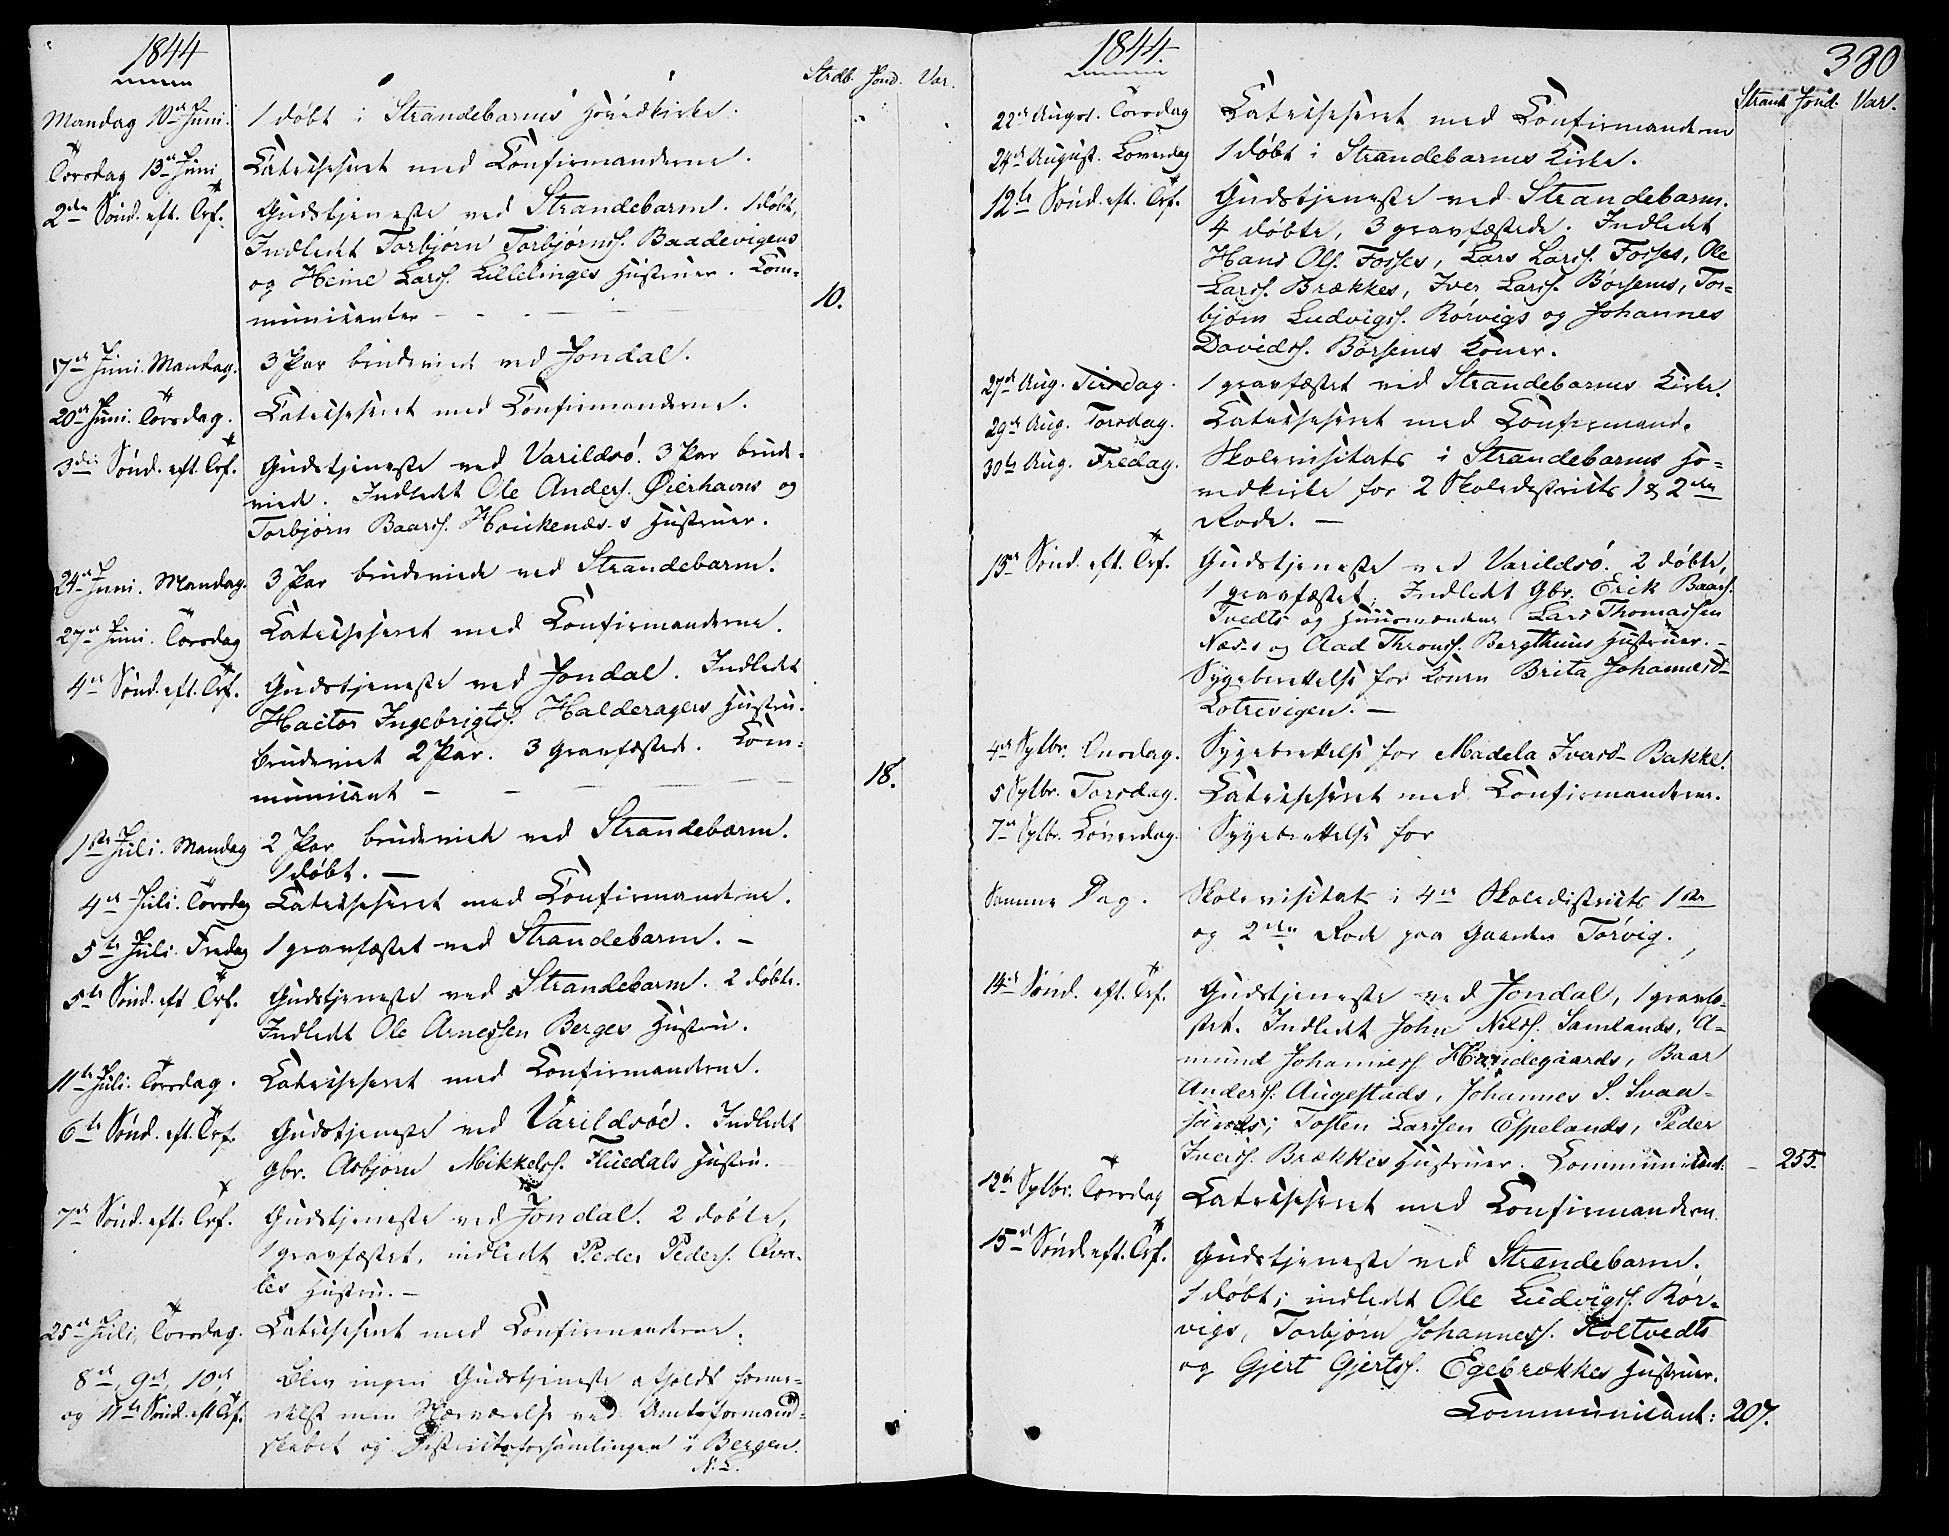 1844
Strdb. Jond. Var.
Mandag 10de Juni. 1 døbt i Strandebarms Hovedkirke.
Torsdag 13de Juni Catechiseret med Confirmanderne.
2den Sønd. eft. Trf. Gudstjeneste ved Strandebarm. 1 døbt,
Indledt Torbjørn Torbjørns. Baadevigens
og Heine Lars. Lillelinges Hustruer. Com-
municanter - - - - 10.
17de Juni. Mandag. 3 Par brudeviede ved Jondal.
20de Juni. Torsdag. Catechiseret med Confirmanderne.
3die Sønd. eft Trf. Gudstjeneste ved Varildsø. 3 Par brude-
viede. Indledt Ole Anders. Øierhavns og
Torbjørn Baards. Houkenæs-s Hustruer.
24de Juni. Mandag. 3 Par brudeviede ved Strandebarm.
27de Juni. Torsdag Catechiseret med Confirmanderne.
4de Sønd. eft. Trf. Gudstjeneste ved Jondal. Indledt
Hactor Ingebrigts. Halderagers Hustru.
brudeviet 2 Par. 3 gravfæstede. Com-
municant - - - - 18.
1ste Juli. Mandag 2 Par brudeviede ved Strandebarm.
1 døbt. -
4de Juli. Torsdag Catechiseret med Confirmanderne.
5te Juli. Fredag 1 gravfæstet ved Strandebarm. -
5te Sønd. eft Trf. Gudstjeneste ved Strandebarm. 2 døbte.
Indledt Ole Arnessen Berges Hustru.
11te Juli. Torsdag. Catechiseret med Confirmanderne.
6te Sønd. eft. Trf. Gudstjeneste ved Varildsøe. Indledt
Gbr. Asbjørn Mikkels. Fluedals Hustru.
7de Sønd. eft. Trf. Gudstjeneste ved Jondal. 2 døbte,
1 gravfæstet, indledt Peder Peders. Qva-
les Hustru. -
25de Juli, Torsdag. Catechiseret med Confirmanderne.
8de, 9de, 10de Blev ingen Gudstjeneste afholdt forme-
og 11te Sønd. eft Trf. delst min Nærværelse ved Amtsformand-
skabet og Districtsforsamlingen i Bergen.
N. L.
1844.
380
Strand Jond. Var.
22de August. Torsdag Catechiseret med Confirmanderne
24de August. Løverdag 1 døbt i Strandebarms Kirke.
12te Sønd. eft. Trf. Gudstjeneste ved Strandebarm.
4 døbte, 3 gravfæstede. Indledt
Hans Ols. Fosses, Lars Lars. Fosses, Ole
Lars. Brækkes, Iver Lars. Børsems, Tor-
bjørn Ludvigs. Rørvigs og Johannes
Davids. Børsems Koner.
27de Aug. Tirsdag. 1 gravfæstet ved Strandebarms Kirke.
29de Aug. Torsdag. Catechiseret med Confirmand.
30te Aug. Fredag. Skolevisitats i Strandebarms Ho-
vedkirke for 2 Skoledistricts 1 & 2den
Rode. -
13de Sønd. eft. Trf. Gudstjeneste ved Varildsø. 2 døbte,
1 gravfæstet. Indledt Gbr. Erick Baards.
Tvedts og Huusmændene Lars Thomassen
Næs-s og Aad Throns. Bergthuns Hustruer. -
Sygeberettelse for Konen Brita Johannesd-
Lotrevigen. -
4de Sptbr. Onsdag. Sygeberettelse for Madela Iversd- Bakke.
5 Sptbr. Torsdag. Catechiseret med Confirmanderne.
7de Sptbr. Løverdag. Sygeberettelse for
Samme Dag. Skolevisitats i 4de Skoledistricts 1ste
og 2den Rode paa Gaarden Tørvig.
14de Sønd. eft. Trf. Gudstjeneste ved Jondal, 1 gravfæ-
stet. Indledt John Nils. Samlands, A-
mund Johanness. Handegaards, Baar
Anders. Augestads, Johannes S. Svaa-
sands, Tosten Larssen Espelands, Peder
Ivers. Brækkes Hustruer. Communicant. - 255.
12te Sptbr. Torsdag Catechiseret med Confirmanderne.
15de Sønd. eft. Trf. Gudstjeneste ved Strandebarm.
1 døbt; indledt Ole Ludvigs. Rør-
vigs, Torbjørn Johannes. Holtvedts
og Gjert Gjerts. Egebrækkes Hustruer.
Communicant: 207.